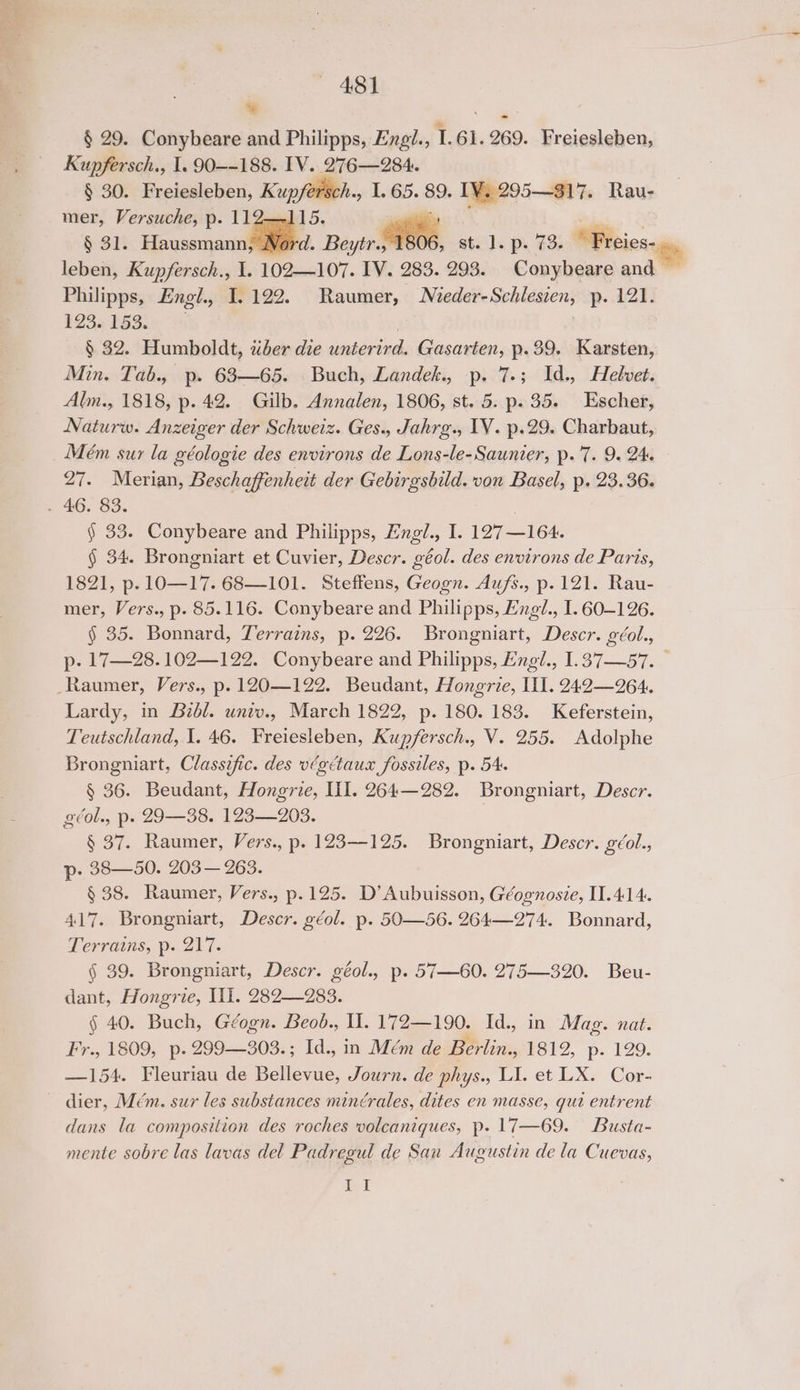 481
§ 29. Conybeare and Philipps, Engl., I. 61. 269. Freiesleben,
Kupfersch., I. 90—-188. IV. 276—284.
§ 30. Freiesleben, Kupfersch., I. 65. 89. IV. 295—317. Rau-
mer, Versuche, p. 112—115.
§ 31. Haussmann, Nord. Beytr., 1806, st. 1. p. 73. Freies-
leben, Kupfersch., I. 102—107. IV. 283. 293. Conybeare and
Philipps, Engl., I. 122. Raumer, Nieder-Schlesien, p. 121.
123. 153.
§ 32. Humboldt, über die unterird. Gasarten, p. 39. Karsten,
Min. Tab., p. 63—65. Buch, Landek., p. 7.; Id., Helvet.
Alm., 1818, p. 42. Gilb. Annalen, 1806, st. 5. p. 35. Escher,
Naturw. Anzeiger der Schweiz. Ges., Jahrg., IV. p. 29. Charbaut,
Mém sur la géologie des environs de Lons-le-Saunier, p. 7. 9. 24.
27. Merian, Beschaffenheit der Gebirgsbild. von Basel, p. 23. 36.
46. 83.
§ 33. Conybeare and Philipps, Engl., I. 127—164.
§ 34. Brongniart et Cuvier, Descr. géol. des environs de Paris,
1821, p. 10—17. 68—101. Steffens, Geogn. Aufs., p. 121. Rau-
mer, Vers., p. 85. 116. Conybeare and Philipps, Engl., I. 60–126.
§ 35. Bonnard, Terrains, p. 226. Brongniart, Descr. géol.,
p. 17—28. 102—122. Conybeare and Philipps, Engl., I. 37—57.
Raumer, Vers., p. 120—122. Beudant, Hongrie, III. 242—264.
Lardy, in Bibl. univ., March 1822, p. 180. 183. Keferstein,
Teutschland, I. 46. Freiesleben, Kupfersch., V. 255. Adolphe
Brongniart, Classific. des végétaux fossiles, p. 54.
§ 36. Beudant, Hongrie, III. 264—282. Brongniart, Descr.
géol., p. 29—38. 123—203.
§ 37. Raumer, Vers., p. 123—125. Brongniart, Descr. géol.,
p. 38—50. 203—263.
§ 38. Raumer, Vers., p. 125. D'Aubuisson, Géognosie, II. 414.
417. Brongniart, Descr. géol. p. 50—56. 264—274. Bonnard,
Terrains, p. 217.
§ 39. Brongniart, Descr. géol., p. 57—60. 275—320. Beu-
dant, Hongrie, III. 282—283.
§ 40. Buch, Géogn. Beob., II. 172—190. Id., in Mag. nat.
Fr., 1809, p. 299—303.; Id., in Mém de Berlin., 1812, p. 129.
—154. Fleuriau de Bellevue, Journ. de phys., LI. et LX. Cor-
dier, Mém. sur les substances minérales, dites en masse, qui entrent
dans la composition des roches volcaniques, p. 17—69. Busta-
mente sobre las lavas del Padregul de San Augustin de la Cuevas,
I I